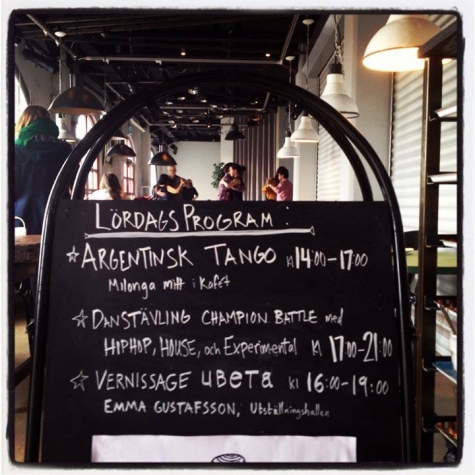 LÖRDAGSPROGRAM
ARGENTINSK TANGO Kl 14:00-17:00
Milonga mitt i kafét
DANSTÄVLING CHAMPION BATTLE med
HIPHOP, HOUSE, och Experimental Kl 17:00-21:00
VERNISSAGE UBETA kl 16:00-19:00
EMMA GUSTAFSSON, Utställningshallen